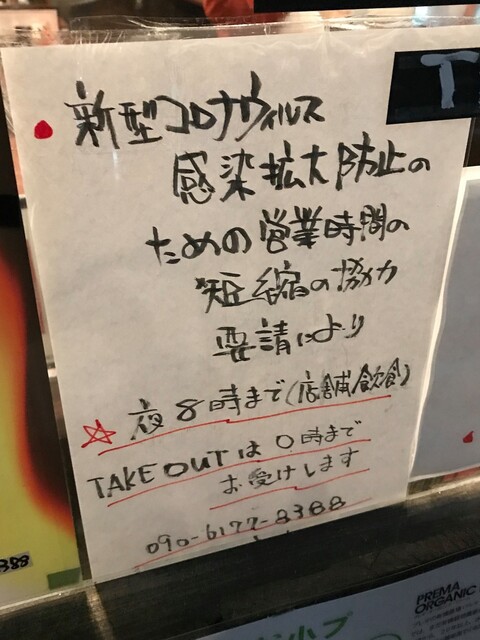 新型コロナウィルス
感染拡大防止の
ための営業時間の
短縮の協力
要請により
☆夜8時まで(店舗飲食)
TAKE OUTは0時まで
お受けします
090-6177-8388
388
PREMA
ORGANIC
T